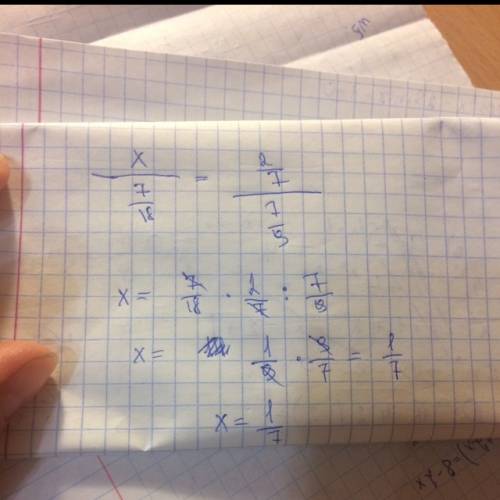 x / (7/18) = (2/7) / (7/9)
x = 7/18 · 2/7 : 7/9
x = 1/9 · 9/7 = 1/7
x = 1/7